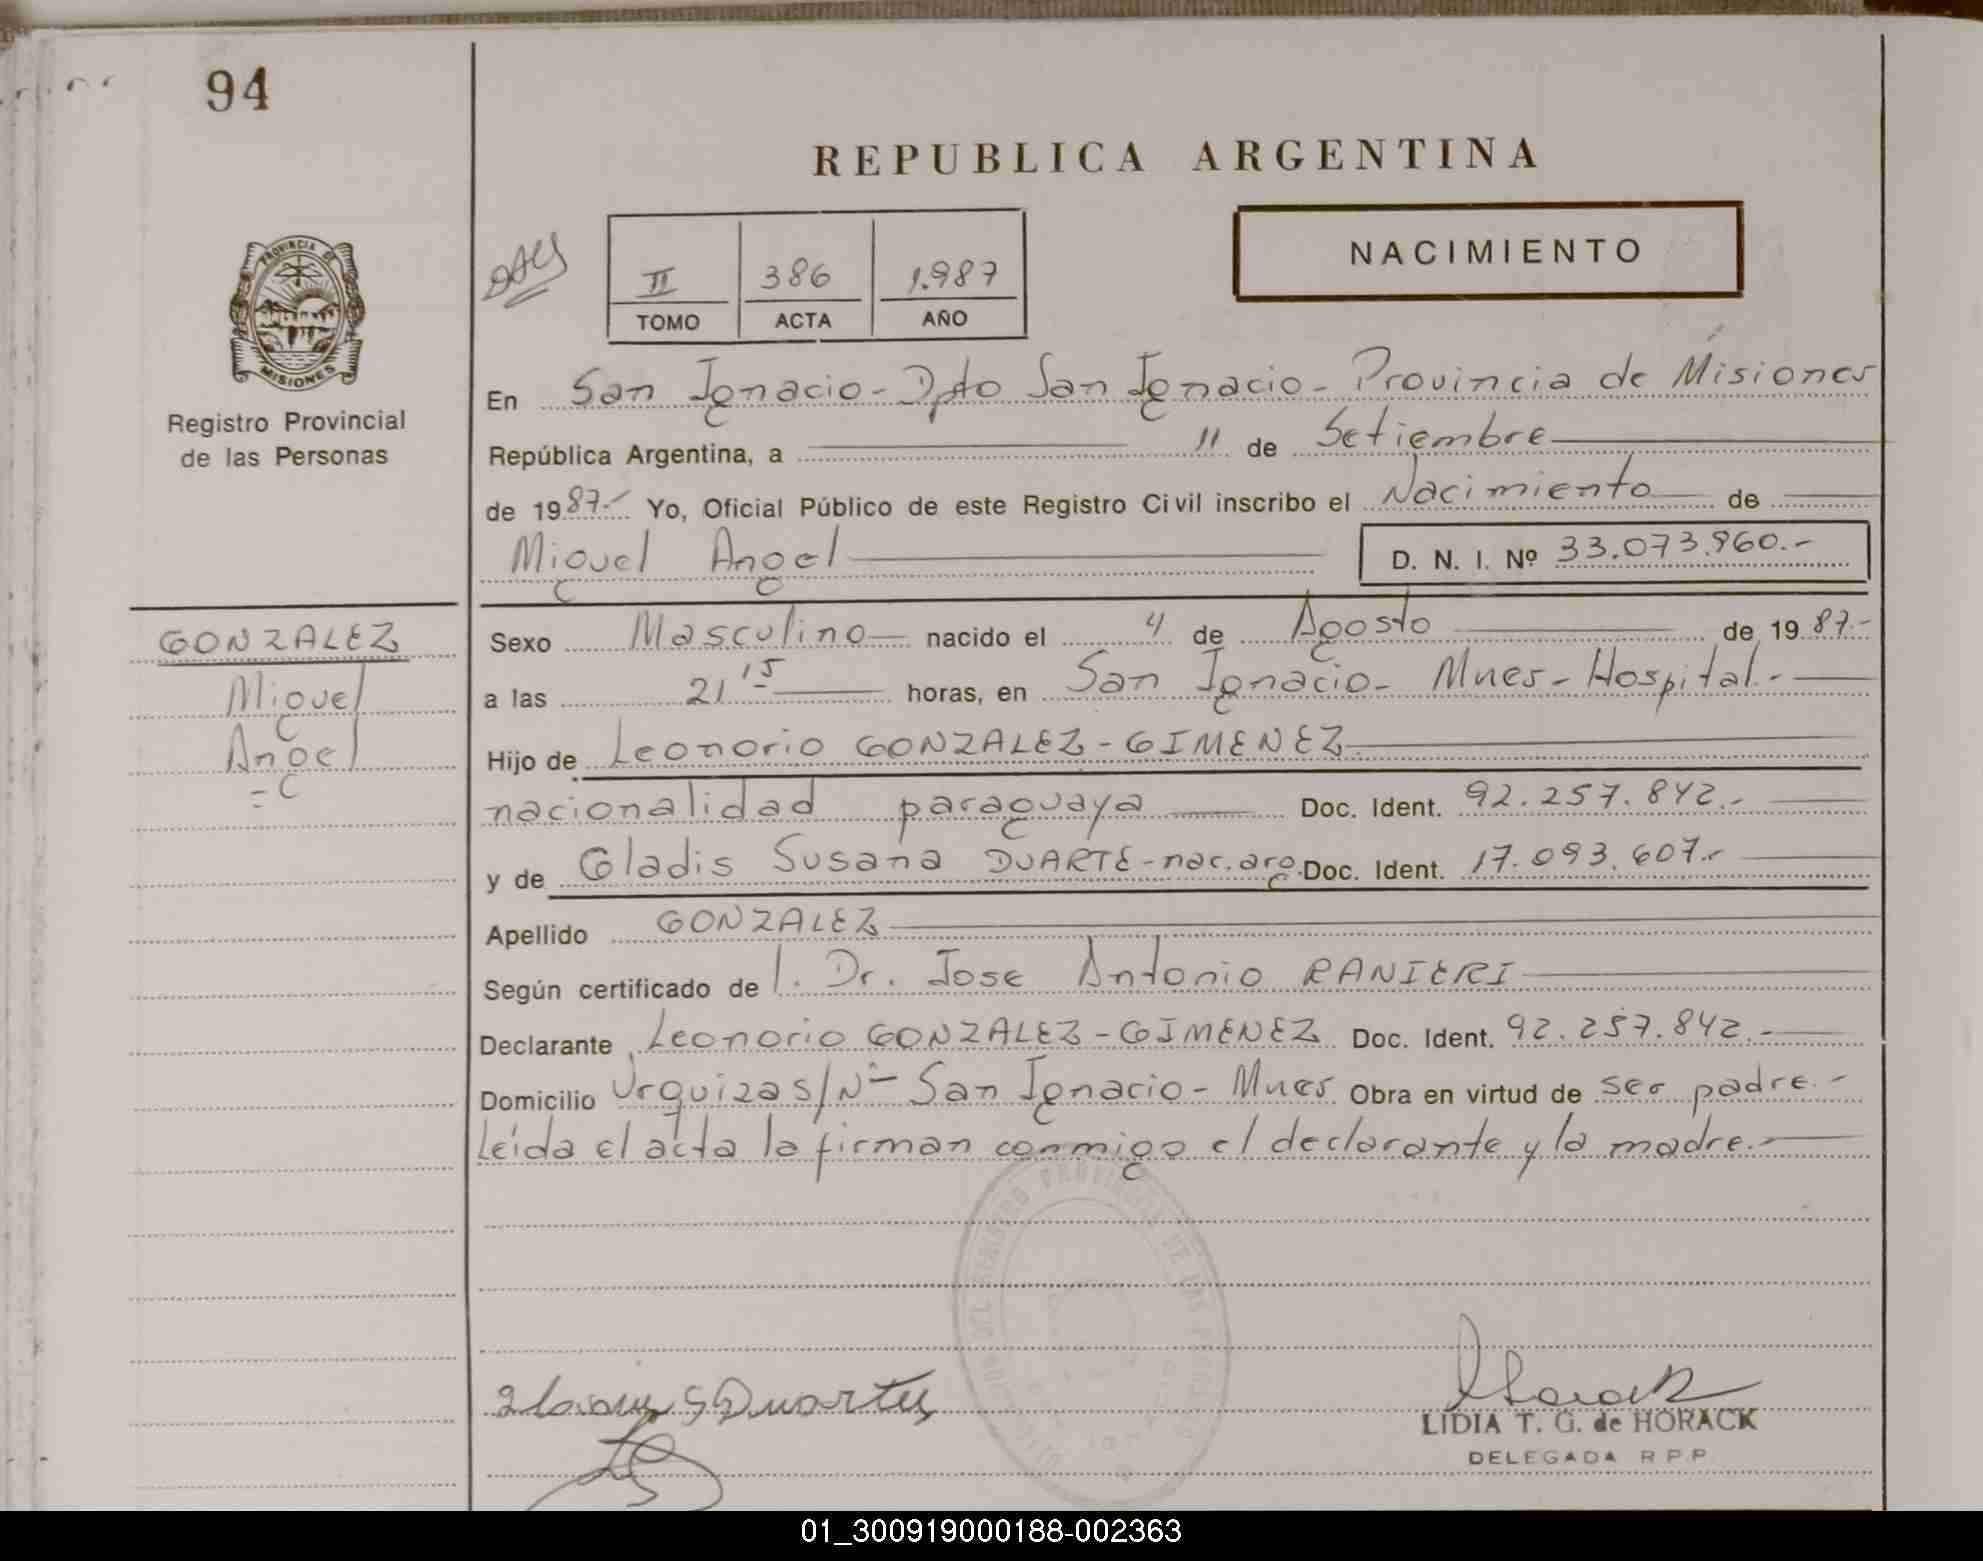 94
REPUBLICA ARGENTINA
PROVINCIA DE
MISIONES
Registro Provincial
de las Personas
II 386 1.987
TOMO ACTA AÑO
NACIMIENTO
En San Ignacio - Dpto San Ignacio - Provincia de Misiones
República Argentina, a 11 de Setiembre
de 1987.- Yo, Oficial Público de este Registro Civil inscribo el Nacimiento de
Miguel Angel D. N. I. Nº 33.073.960.-
GONZALEZ
Miguel
Angel
Sexo Masculino nacido el 4 de Agosto de 1987.-
a las 21 15 horas, en San Ignacio - Mnes - Hospital.-
Hijo de Leonorio GONZALEZ - GIMENEZ
nacionalidad paraguaya Doc. Ident. 92.257.842.-
y de Gladis Susana DUARTE - nac. arg. Doc. Ident. 17.093.607.-
Apellido GONZALEZ
Según certificado de l. Dr. Jose Antonio RANIERI
Declarante Leonorio GONZALEZ - GIMENEZ Doc. Ident. 92.257.842.-
Domicilio Urquiza S/Nº - San Ignacio - Mnes Obra en virtud de ser padre.-
Leída el acta la firman conmigo el declarante y la madre.-
LIDIA T. G. de HORACK
DELEGADA R P P
01_300919000188-002363